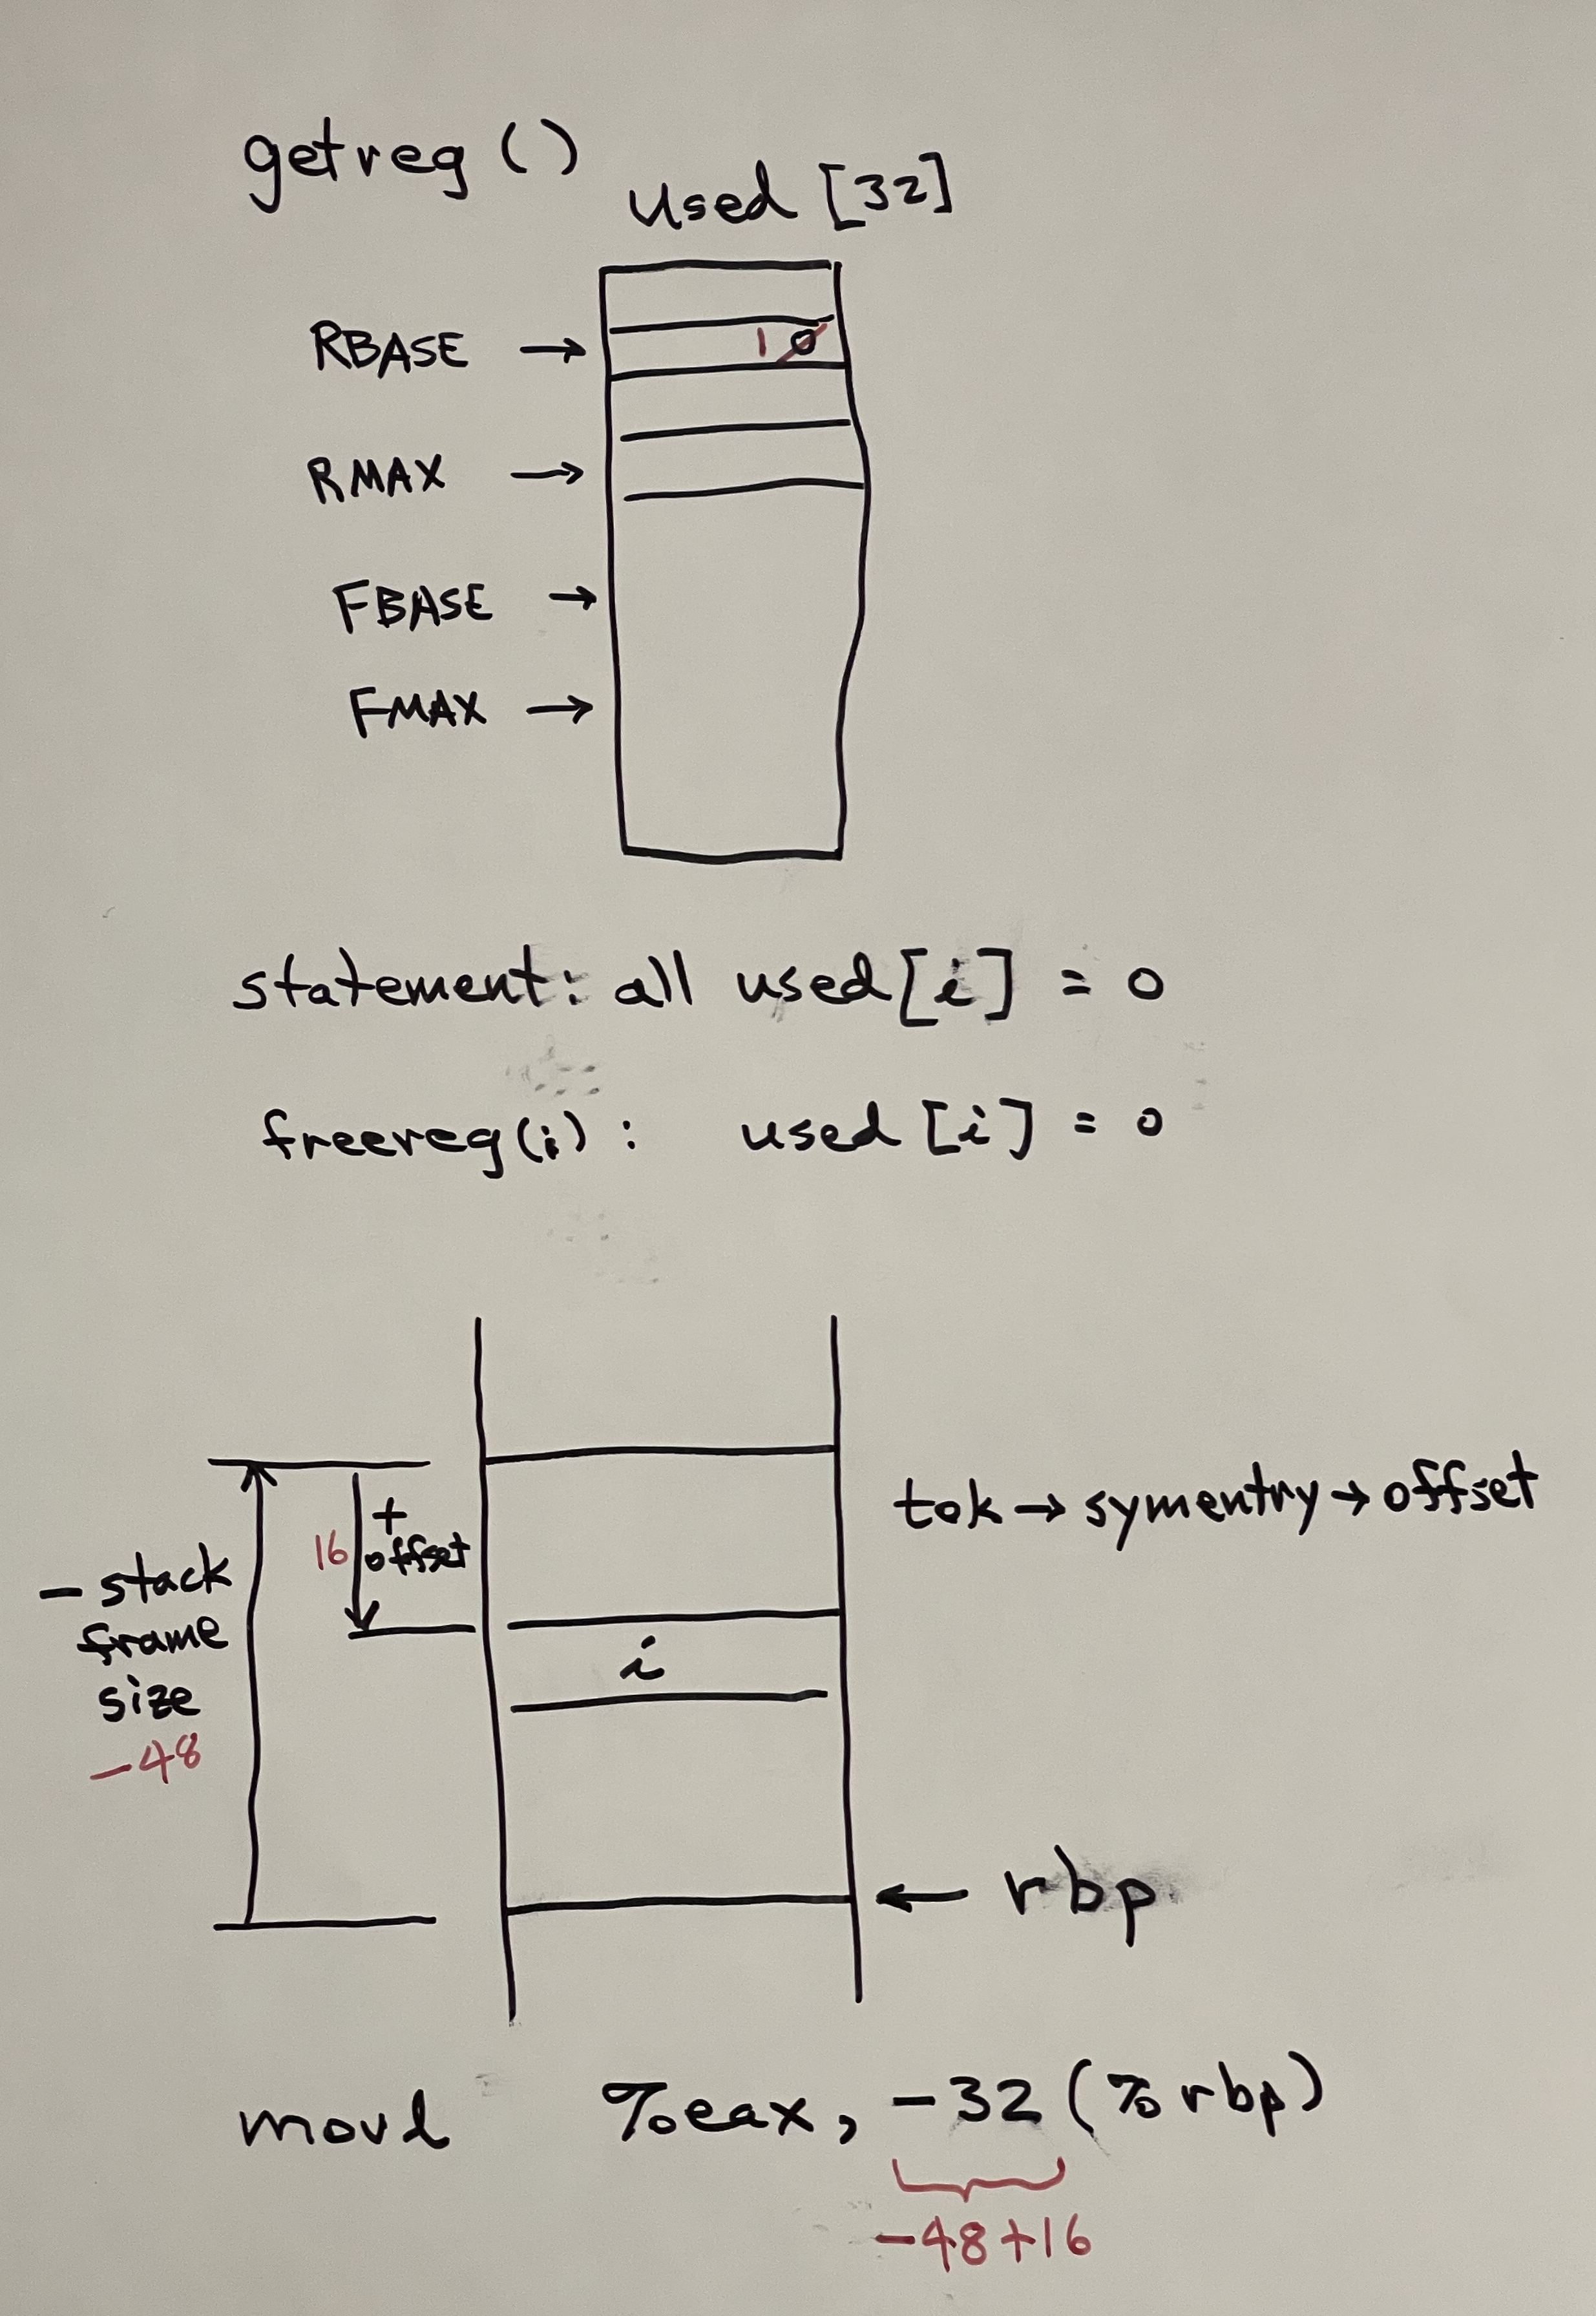 getreg ()
used [32]
RBASE → 1 0
RMAX →
FBASE →
FMAX →
statement: all used[i] = 0
freereg(i) : used [i] = 0
tok → symentry → offset
+
16 offset
- stack
frame
size
-48
i
← rbp
movl %eax, -32 (%rbp)
-48+16